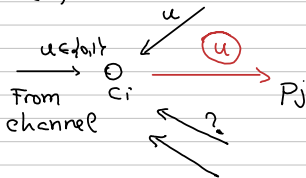 u
u∈{0,1}
u
From
channel
Ci
Pj
?